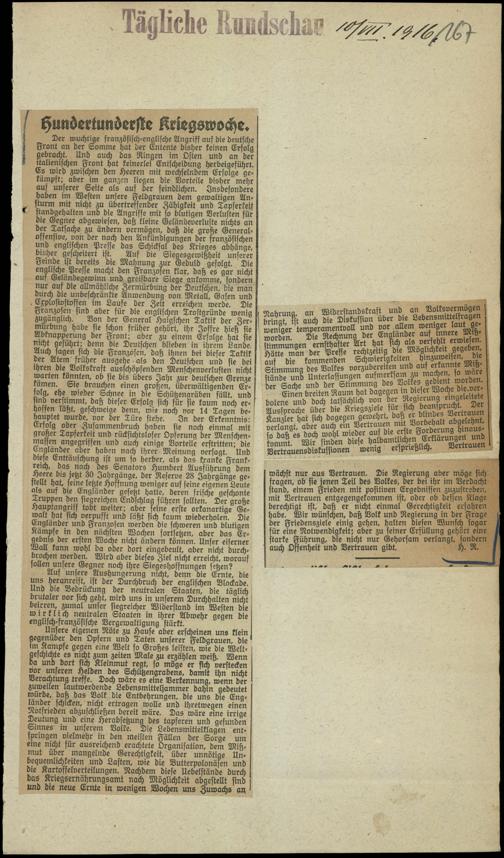 Tägliche Rundschau
10/VII. 1916.
167
Hundertunderste Kriegswoche.
Der wuchtige französisch-englische Angriff auf die deutsche
Front an der Somme hat der Entente bisher keinen Erfolg
gebracht. Und auch das Ringen im Osten und an der
italienischen Front hat keinerlei Entscheidung herbeigeführt.
Es wird zwischen den Heeren mit wechselndem Erfolge ge-
kämpft; aber im ganzen liegen die Vorteile bisher mehr
auf unserer Seite als auf der feindlichen. Insbesondere
haben im Westen unsere Feldgrauen dem gewaltigen An-
sturm mit nicht zu übertreffender Zähigkeit und Tapferkeit
standgehalten und die Angriffe mit so blutigen Verlusten für
die Gegner abgewiesen, daß kleine Geländeverluste nichts an
der Tatsache zu ändern vermögen, daß die große General-
offensive, von der nach den Ankündigungen der französischen
und englischen Presse das Schicksal des Krieges abhänge,
bisher gescheitert ist. Auf die Siegesgewißheit unserer
Feinde ist bereits die Mahnung zur Geduld gefolgt. Die
englische Presse macht den Franzosen klar, daß es gar nicht
auf Geländegewinn und greifbare Siege ankomme, sondern
nur auf die allmähliche Zermürbung der Deutschen, die man
durch die unbeschränkte Anwendung von Metall, Gasen und
Explosivstoffen im Laufe der Zeit erreichen werde. Die
Franzosen sind aber für die englischen Trostgründe wenig
zugänglich. Von der General Haigschen Taktik der Zer-
mürbung habe sie schon früher gehört, ihr Joffre hieß sie
Abknapperung der Front; aber zu einem Erfolg hat sie
nicht geführt; denn die Deutschen blieben in ihrem Lande.
Auch sagen sich die Franzosen, daß ihnen bei dieser Taktik
der Atem früher ausgehe als den Deutschen und sie bei
ihren die Volkskraft ausschöpfenden Menschenverlusten nicht
warten könnten, ob sie bis übers Jahr zur deutschen Grenze
kämen. Sie brauchen einen großen, überwältigenden Er-
folg, ehe wieder Schnee in die Schützengräben fällt, und
sind verstimmt, daß dieser Erfolg sich für sie kaum noch er-
hoffen läßt, geschweige denn, wie noch vor 14 Tagen be-
hauptet wurde, vor der Türe stehe. In der Erkenntnis:
Erfolg oder Zusammenbruch haben sie noch einmal mit
großer Tapferkeit und rücksichtsloser Opferung der Menschen-
massen angegriffen und auch einige Vorteile erstritten; die
Engländer aber haben nach ihrer Meinung versagt. Und
diese Enttäuschung ist um so herber, als das kranke Frank-
reich, das nach des Senators Humbert Ausführung dem
Heere bis jetzt 30 Jahrgänge, der Reserve 28 Jahrgänge ge-
stellt hat, seine letzte Hoffnung weniger auf seine eigenen Leute
als auf die Engländer gesetzt hatte, deren frische geschonte
Truppen den siegreichen Endschlag führen sollten. Der große
Hauptangriff tobt weiter; aber seine erste orkanartige Ge-
walt hat sich verpufft und läßt sich kaum wiederholen. Die
Engländer und Franzosen werden die schweren und blutigen
Kämpfe in den nächsten Wochen fortsetzen, aber das Er-
gebnis der ersten Woche nicht ändern können. Unser eiserner
Wall kann wohl da oder dort eingebeult, aber nicht durch-
brochen werden. Wird aber dieses Ziel nicht erreicht, worauf
sollen unsere Gegner noch ihre Siegeshoffnungen setzen?
Auf unsere Aushungerung nicht, denn die Ernte, die
uns heranreift, ist der Durchbruch der englischen Blockade.
Und die Bedrückung der neutralen Staaten, die täglich
brutaler vor sich geht, wird uns in unserem Durchhalten nicht
beirren, zumal unser siegreicher Widerstand im Westen die
wirklich neutralen Staaten in ihrer Abwehr gegen die
englisch-französische Vergewaltigung stärkt.
Unsere eigenen Nöte zu Hause aber erscheinen uns klein
gegenüber den Opfern und Taten unserer Feldgrauen, die
im Kampfe gegen eine Welt so Großes leisten, wie die Welt-
geschichte es nicht zum zweiten Male zu erzählen weiß. Wenn
da und dort sich Kleinmut regt, so möge er sich verstecken
vor unseren Helden des Schützengrabens, damit ihn nicht
Verachtung treffe. Doch wäre es eine Verkennung, wenn der
zuweilen lautwerdende Lebensmitteljammer dahin gedeutet
würde, daß das Volk die Entbehrungen, die uns die Eng-
länder schicken, nicht ertragen wolle und ihretwegen einen
Notfrieden abzuschließen bereit wäre. Das wäre eine irrige
Deutung und eine Herabsetzung des tapferen und gesunden
Sinnes in unserem Volke. Die Lebensmittelklagen ent-
springen vielmehr in den meisten Fällen der Sorge um
eine nicht für ausreichend erachtete Organisation, dem Miß-
mut über mangelnde Gerechtigkeit, über unnötige Un-
bequemlichkeiten und Lasten, wie die Butterpolonaisen und
die Kartoffelverteilungen. Nachdem diese Uebelstände durch
das Kriegsernährungsamt nach Möglichkeit abgestellt sind
und die neue Ernte in wenigen Wochen uns Zuwachs an
Nahrung, an Widerstandskraft und an Volksvermögen
bringt, ist auch die Diskussion über die Lebensmittelfragen
weniger temperamentvoll und vor allem weniger laut ge-
worden. Die Rechnung der Engländer auf innere Miß-
stimmungen ernsthafter Art hat sich als verfehlt erwiesen.
Hätte man der Presse rechtzeitig die Möglichkeit gegeben,
auf die kommenden Schwierigkeiten hinzuweisen, die
Stimmung des Volkes vorzubereiten und auf erkannte Miß-
stände und Unterlassungen aufmerksam zu machen, so wäre
der Sache und der Stimmung des Volkes gedient worden.
Einen breiten Raum hat dagegen in dieser Woche die ver-
botene und doch tatsächlich von der Regierung eingeleitete
Aussprache über die Kriegsziele für sich beansprucht. Der
Kanzler hat sich dagegen gewehrt, daß er blindes Vertrauen
verlangt, aber auch ein Vertrauen mit Vorbehalt abgelehnt,
so daß es doch wohl wieder auf die erste Forderung hinaus-
kommt. Wir finden diese halbamtlichen Erklärungen und
Vertrauensdiskussionen wenig ersprießlich. Vertrauen
wächst nur aus Vertrauen. Die Regierung aber möge sich
fragen, ob sie jenen Teil des Volkes, der bei ihr im Verdacht
stand, einem Frieden mit positiven Ergebnissen zuzustreben,
mit Vertrauen entgegengekommen ist, oder ob dessen Klage
berechtigt ist, daß er nicht einmal Gerechtigkeit erfahren
habe. Wir wünschen, daß Volk und Regierung in der Frage
der Friedensziele einig gehen, halten diesen Wunsch sogar
für eine Notwendigkeit; aber zu seiner Erfüllung gehört eine
starke Führung, die nicht nur Gehorsam verlangt, sondern
auch Offenheit und Vertrauen gibt. H. R.